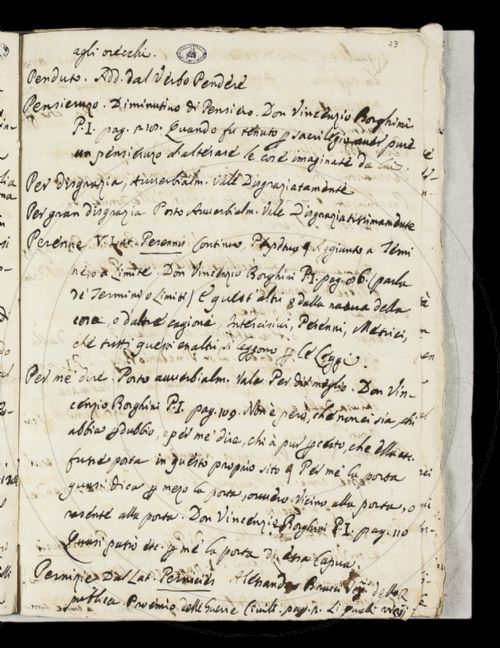 29
agli orecchi.
Penduto. Add. dal Verbo Pendere
Pensieruzo. Diminutivo di Pensiero. Don Vincenzio Borghini
P. I. pag. Quando fu tenuto sacrilegio aver pure
un pensieruzo d'alterare le cose imaginate da lui.
Per disgrazia, Avverbialm. Vale Disgraziatamente
Per gran disgrazia Posto Avverbialm. Vale Disgraziatissimamente
Perenne V. Lat. Perennis Continuo. Aggiunto a Termi
ne, o a Limite. Don Vincenzio Borghini P. I. pag. parla
de' Termini o Limiti) E quest'altri dalla natura della
cosa, o d'altra cagione, Intercisivi, Perenni, Metrici,
che tutti questi leggono Leggi.
Per me dire. Posto avverbialm. Vale Per dir meglio. Don Vin-
cenzio Borghini P. I. pag. 109. Non è però, che non ci sia chi
abbia dubbio, o per me' dire, chi à pur creduto, che
fusse posta in questo proprio sito Per me' la porta
quasi dica mezo la porta, ovvero vicino alla porta, o
rasente alla porta. Don Vincenzio Borghini P. I. pag. 110
Quasi etc. me' la porta di Capua.
Pernizie Dal Lat. Pernicies Alessandro della R
publica Proemio delle Guerre Civili. pag. Li quali